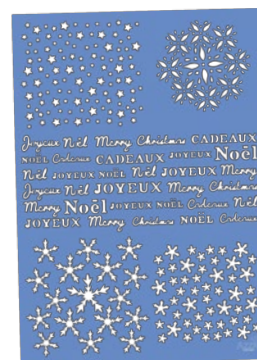 Joyeux Noël Merry Christmas CADEAUX
NOËL Cadeaux CADEAUX JOYEUX Noël
Noël JOYEUX NOËL Noël JOYEUX Merry
Joyeux Noël JOYEUX Merry Christmas
Merry Noël JOYEUX NOËL Cadeaux Noël
JOYEUX Merry Christmas NOËL Cadeaux